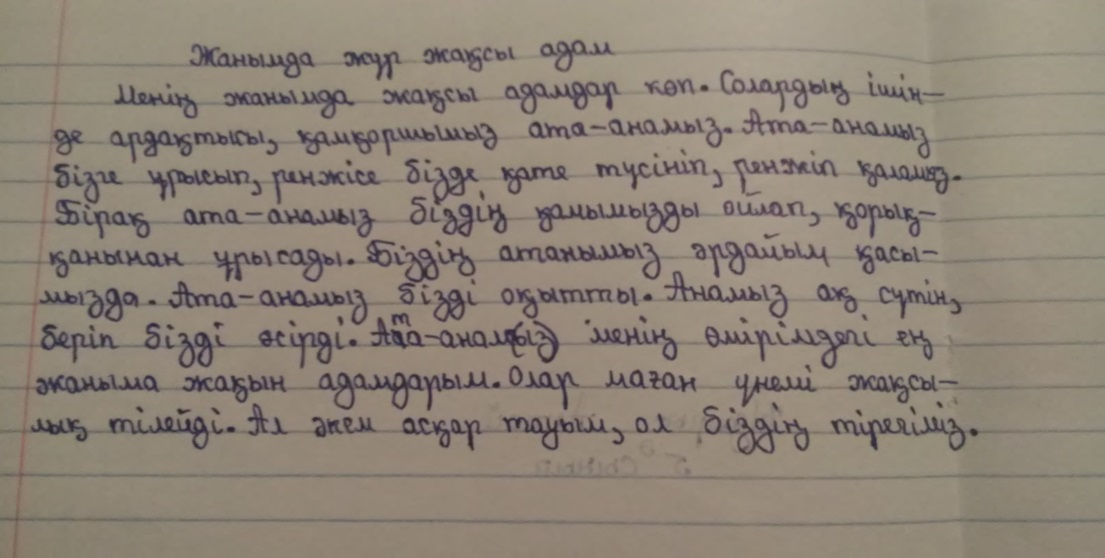 Жанымда жүр жақсы адам
Менің жанымда жақсы адамдар көп. Солардың ішін-
де ардақтысы, қамқоршымыз ата-анамыз. Ата-анамыз
бізге ұрысып, ренжісе бізде қате түсініп, ренжіп қаламыз.
Бірақ ата-анамыз біздің қамымызды ойлап, қорық-
қанынан ұрысады. Біздің атанымыз әрдайым қасы-
мызда. Ата-анамыз бізді оқытты. Анамыз ақ сүтін,
беріп бізді өсірді. Ата-анам(ыз) менің өмірімдегі ең
жаныма жақын адамдарым. Олар маған үнемі жақсы-
лық тілейді. Ал әкем асқар тауым, ол біздің тірегіміз.